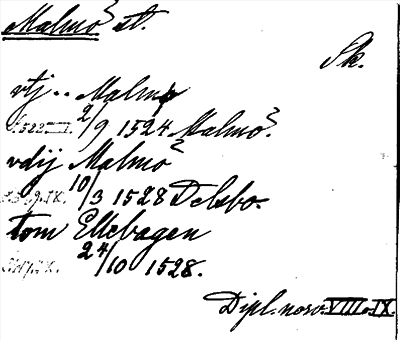 Malmö st.
Sk.
vtj .. Malmø
2/9 1524 Malmö.
vdij Malmö
10/3 1528 Delsbo.
tom Ellebagen
24/10 1528.
Dipl. norv. VIII o IX.